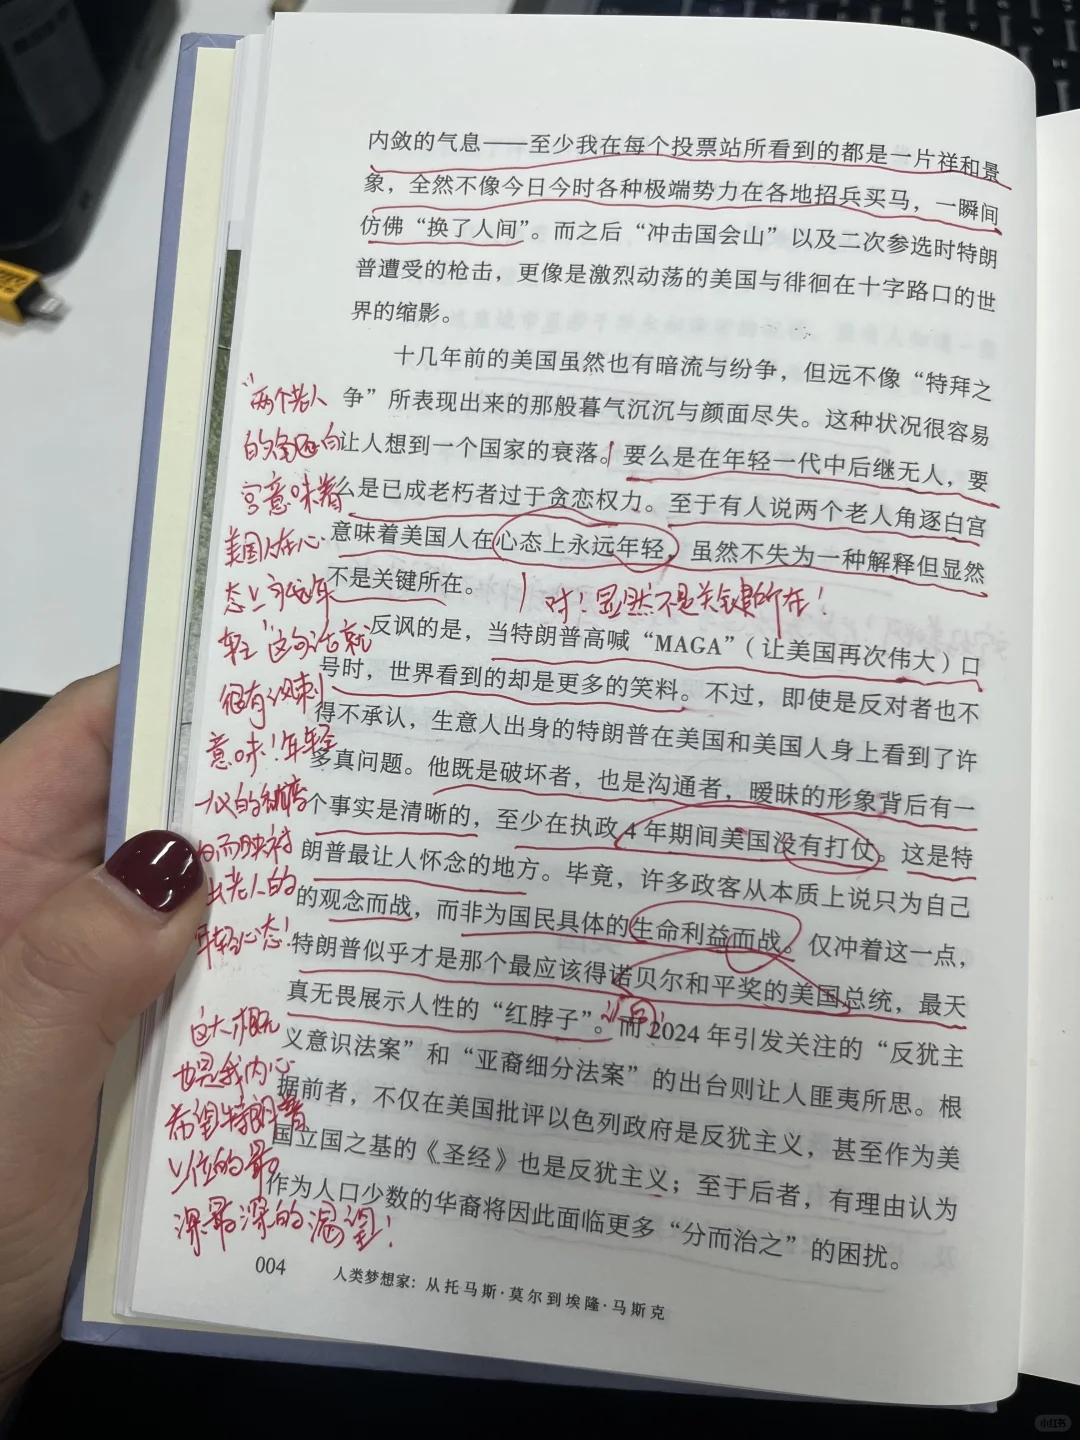 内敛的气息——至少我在每个投票站所看到的都是一片祥和景
象，全然不像今日今时各种极端势力在各地招兵买马，一瞬间
仿佛“换了人间”。而之后“冲击国会山”以及二次参选时特朗
普遭受的枪击，更像是激烈动荡的美国与徘徊在十字路口的世
界的缩影。
十几年前的美国虽然也有暗流与纷争，但远不像“特拜之
争”所表现出来的那般暮气沉沉与颜面尽失。这种状况很容易
让人想到一个国家的衰落。要么是在年轻一代中后继无人，要
么是已成老朽者过于贪恋权力。至于有人说两个老人角逐白宫
意味着美国人在心态上永远年轻，虽然不失为一种解释但显然
不是关键所在。
对！显然不是关键所在！
反讽的是，当特朗普高喊“MAGA”（让美国再次伟大）口
号时，世界看到的却是更多的笑料。不过，即使是反对者也不
得不承认，生意人出身的特朗普在美国和美国人身上看到了许
多真问题。他既是破坏者，也是沟通者，暧昧的形象背后有一
个事实是清晰的，至少在执政4年期间美国没有打仗。这是特
朗普最让人怀念的地方。毕竟，许多政客从本质上说只为自己
的观念而战，而非为国民具体的生命利益而战。仅冲着这一点，
特朗普似乎才是那个最应该得诺贝尔和平奖的美国总统，最天
真无畏展示人性的“红脖子”。而2024年引发关注的“反犹主
义意识法案”和“亚裔细分法案”的出台则让人匪夷所思。根
据前者，不仅在美国批评以色列政府是反犹主义，甚至作为美
国立国之基的《圣经》也是反犹主义；至于后者，有理由认为
作为人口少数的华裔将因此面临更多“分而治之”的困扰。
“两个老人
的角逐白
宫意味着
美国人在心
态上永远年
轻”这句话就
很有讽刺
意味！年轻
出老人的
年轻心态！
这大概
也是我内心
希望特朗普
上位的最
深最深的渴望！
004
人类梦想家：从托马斯·莫尔到埃隆·马斯克
小红书